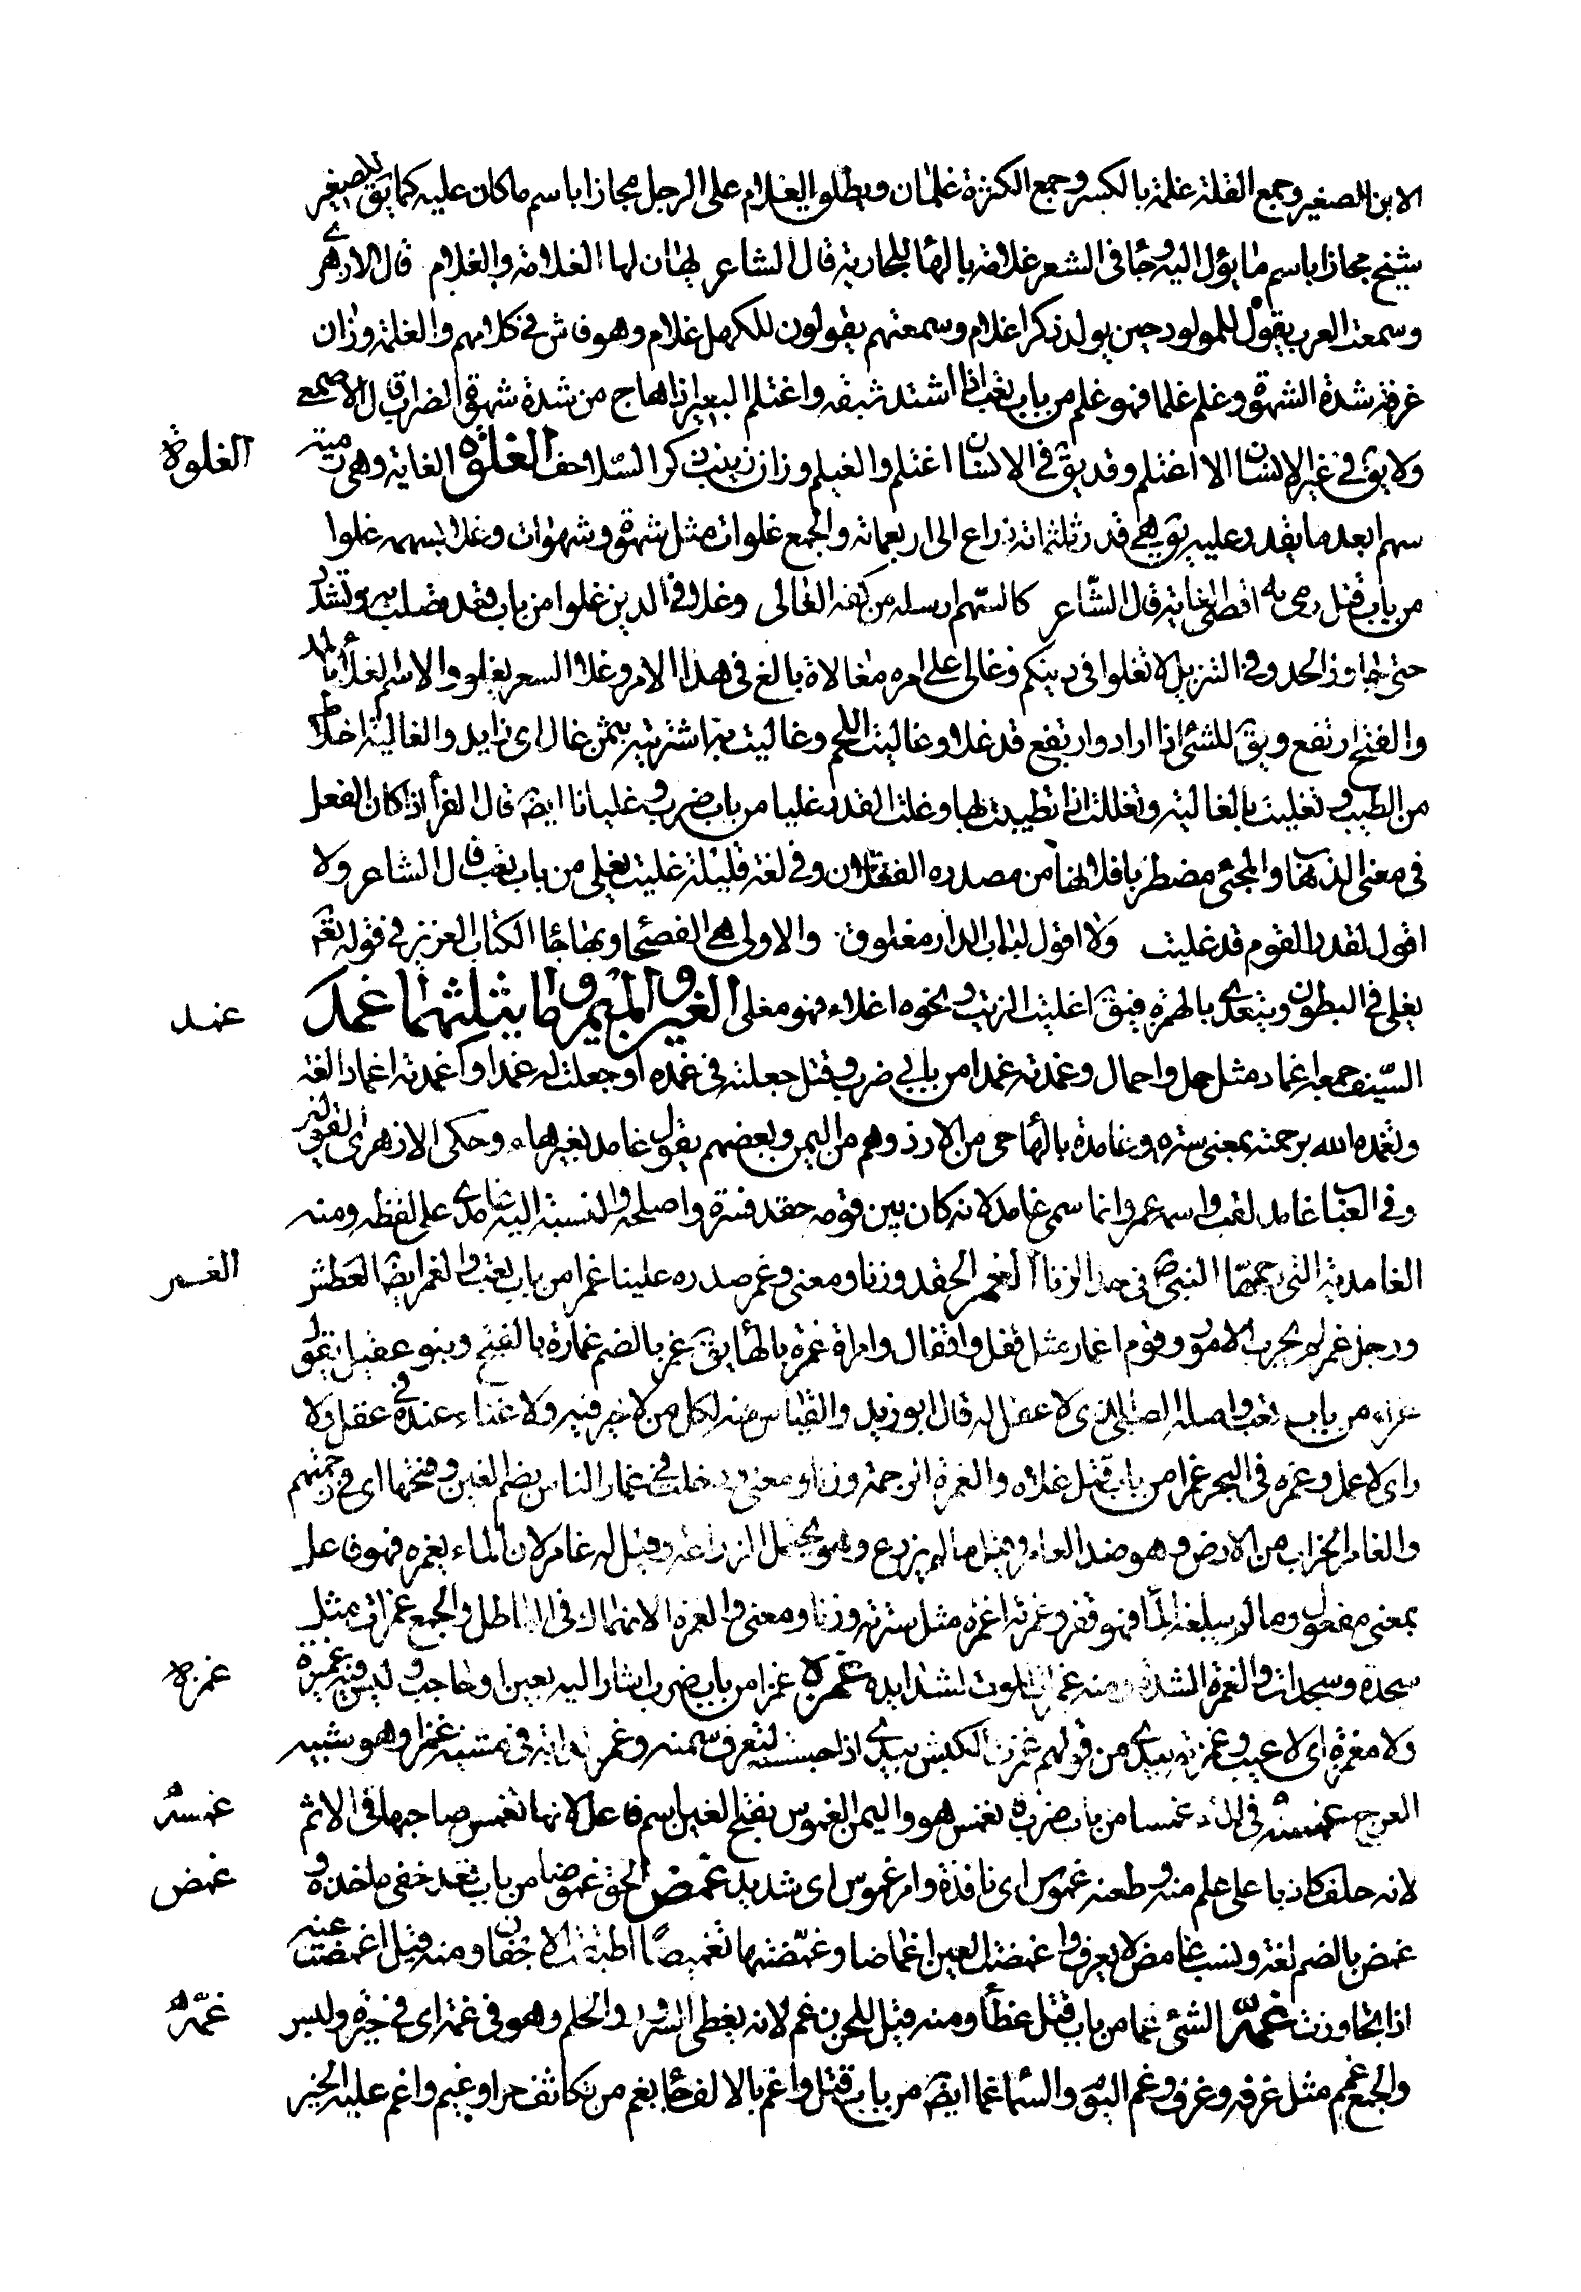 الابن الصغير وجمع القلة غلمة بالكسر وجمع الكثرة غلمان ويطلق الغلام على الرجل مجازا باسم ما كان عليه كما يق للصغير
شيخ مجازا باسم ما يؤل اليه وجا في الشعر غلامة بالها للجارية قال الشاعر يهان لها الغلامة والغلام قال الازهري
وسمعت العرب يقول للمولود حين يولد ذكرا غلام وسمعتهم يقولون للكهل غلام وهو فاش في كلامهم والغلمة وزان
غرفة شدة الشهوة وغلم غلما فهو غلم من باب تعب اذا اشتد شبقه واغتلم البعير اذا هاج من شدة شهوة الضراب قال الاصمعي
ولا يق في غير الانسان الا اغتلم وقد يق في الانسان اغتلم والغيلم وزان زينب ذكر السلاحف الغلوة الغاية وهي رمية
الغلوة
سهم ابعد ما يقدر عليه يق هي قدر ثلثمائة ذراع الى اربعمائة والجمع غلوات مثل شهوة وشهوات وغلا بسهمه غلوا
من باب قتل رمى به اقصى الغاية قال الشاعر كالسهم ارسله من كفه الغالي وغلا في الدين غلوا من باب قعد تصلب وتشدد
حتى جاوز الحد وفي التنزيل لا تغلوا في دينكم وغالى على امره مغالاة بالغ في هذا الامر وغلا السعر يغلو والاسم الغلاء بالمد
والفتح ارتفع ويق للشئ اذا زاد وارتفع قد غلا وغاليت اللحم وغاليت به اشتريته بثمن غال اى زايد والغالية اخلاط
من الطيب وتغليت بالغالية وتغللت اذا تطيبت بها وغلت القدر غليا من باب ضرب وغليانا ايضا قال الفرأ اذا كان الفعل
في معنى الذهاب والمجئ مضطربا فلا تهابن من مصدره الفعلان وفي لغة قليلة غليت تغلى من باب تعب قال الشاعر ولا
اقول لقدر القوم قد غليت ولا اقول لباب الدار مغلوق والاولى هي الفصحى وبها جا الكتاب العزيز في قوله تعم
يغلى في البطون ويتعدى بالهمزة فيق اغليت الزيت ونحوه اغلاء فهو مغلى الغين والميم وما يثلثهما غمد
غمد
السيف جمعه اغماد مثل حمل واحمال وغمدته غمدا من بابي ضرب وقتل جعلته في غمده او جعلت له غمدا واغمدته اغمادا لغة
وتغمده الله برحمته بمعنى ستره وغامدة بالها حي من الازد وهم من اليمن وبعضهم يقول غامد بغير هاء وحكى الازهرى القولين
وفي العباب غامد لقب واسمه عمرو انما سمي غامد لانه كان بين قومه حقد فستره واصلحه والنسبة اليه غامدي على لفظه ومنه
الغامدية التي رجمها النبي ص في حد الزنا الغمر الحقد وزنا ومعنى وغمر صدره علينا غمرا من باب تعب والغمر ايضا العطش
الغمر
ورجل غمر لم يجرب الامور وقوم اغمار مثل قفل واقفال وامراة غمرة بالها يق غمر بالضم غمارة بالفتح وبنو عقيل تقول
غمر من باب تعب واصله الصبى الذى لا عقل له قال ابو زيد والقياس منه لكل من لا خير فيه ولا غناء عنده في عقل ولا
راى ولا عمل وغمره في البحر غمرا من باب قتل علاه والغمرة الزحمة وزنا ومعنى ودخلت في غمار الناس بضم الغين وفتحها اى في زحمتهم
والغامر الخراب من الارض وهو ضد العامر وقيل ما لم يزرع وهو يحتمل الزراعة وقيل له غامر لان الماء يغمره فهو فاعل
بمعنى مفعول وما لم يبلغه الما فهو قفر وغمرته اغمره مثل سترته وزنا ومعنى والغمرة الانهماك في الباطل والجمع غمرات مثل
سجدة وسجدات والغمرة الشدة ومنه غمرات الموت لشدايده غمزه غمزا من باب ضرب اشار اليه بعين او حاجب وليس فيه غميزة
غمزه
ولا مغمزة اى لا عيب وغمزته بيدي من قولهم غمزت الكبش بيدي اذا جسسته لتعرف سمنه وغمز الدابة في مشيه غمزا وهو شبيه
العرج غمسته في الماء غمسا من باب ضرب فانغمس هو واليمين الغموس بفتح الغين اسم فاعل لانها تغمس صاحبها في الاثم
غمسته
لانه حلف كاذبا على علم منه وطعنة غموس اى نافذة وامر غموس اى شديد غمض الحق غموضا من باب قعد خفى ماخذه و
غمض
غمض بالضم لغة ونسب غامض لا يعرف واغمضت العين اغماضا وغمضتها تغميضا اطبقت الاجفان ومنه قيل اغمضت عنه
اذا تجاوزت غمه الشئ غما من باب قتل غطأ ومنه قيل للحزن غم لانه يغطى السرور والحلم وهو في غمة اى في حيرة ولبس
غمه
والجمع غمم مثل غرفة وغرف وغم اليوم والسما غما ايضا من باب قتل واغم بالالف جا بغم من تكاثف حر او غيم واغم عليه الخبر